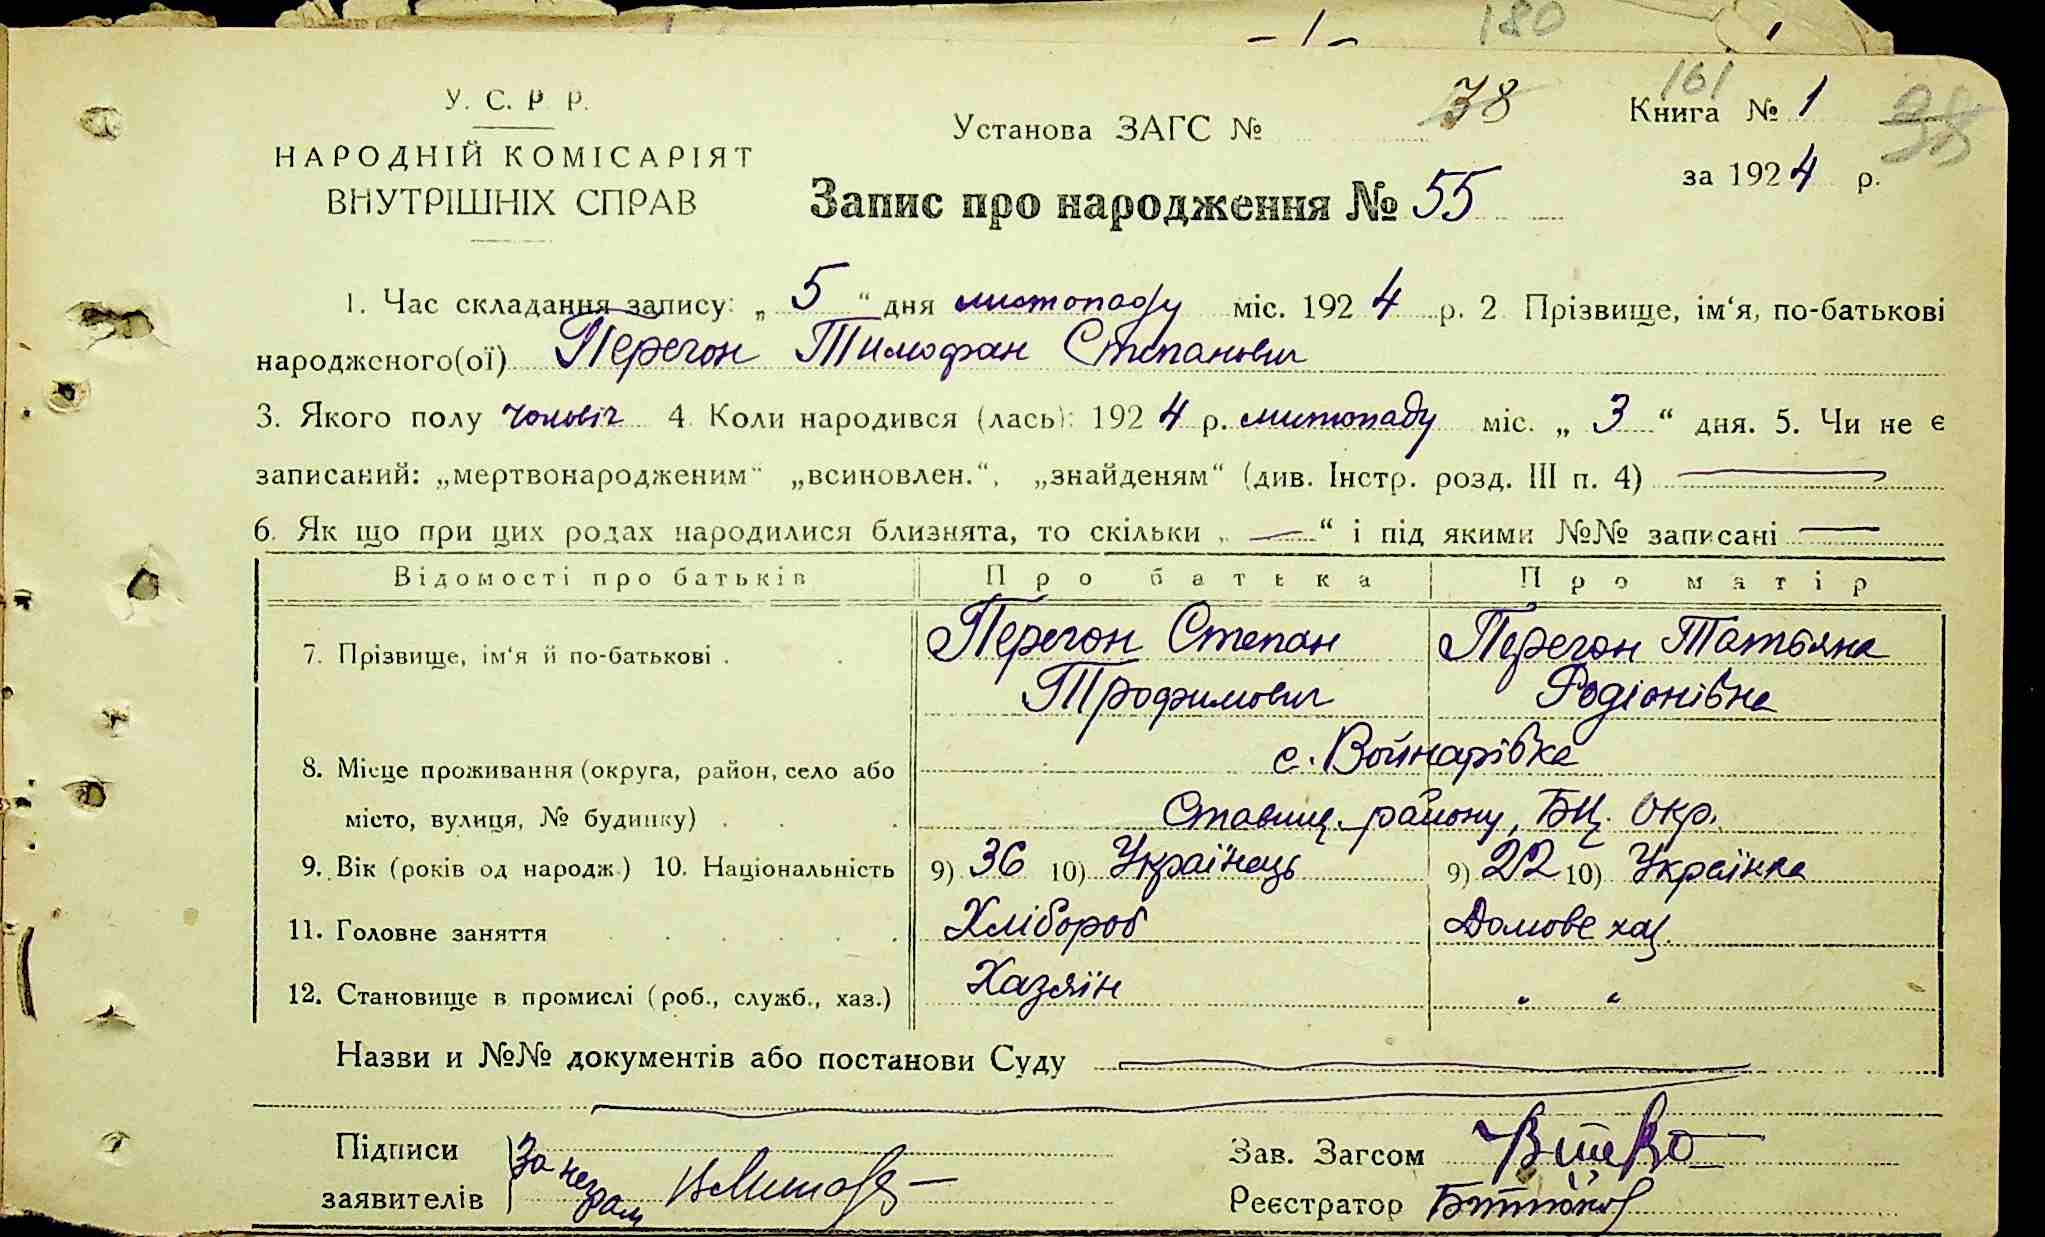 - 1 -
180
У. С. Р. Р.
161
НАРОДНІЙ КОМІСАРІЯТ
ВНУТРІШНІХ СПРАВ
Установа ЗАГС № 38
Книга № 1
38
за 1924 р.
Запис про народження № 55
1. Час складання запису: „5“ дня листопаду міс. 1924 р. 2. Прізвище, ім‘я, по-батькові
народженого(ої) Перегон Тимофан Степанович
3. Якого полу чоловіч 4. Коли народився (лась): 1924 р. листопаду міс. „3“ дня. 5. Чи не є
записаний: „мертвонародженим“ „всиновлен.“, „знайденям“ (див. Інстр. розд. III п. 4) —
6. Як що при цих родах народилися близнята, то скільки „—“ і під якими №№ записані —
Відомості про батьків Про батька Про матір
7. Прізвище, ім‘я й по-батькові . . Перегон Степан Перегон Татьяна
Трофимович Родіонівна
с. Войнарівка
8. Місце проживання (округа, район, село або
місто, вулиця, № будинку) . . . Ставищ. району, БЦ. Окр.
9. Вік (років од народж.) 10. Національність 9) 36 10) Українець 9) 22 10) Українка
11. Головне заняття . . . . . Хлібороб Домове хаз.
12. Становище в промислі (роб., служб., хаз.) Хазяїн " "
Назви и №№ документів або постанови Суду —
Підписи За неграм
заявителів
Зав. Загсом
Реєстратор